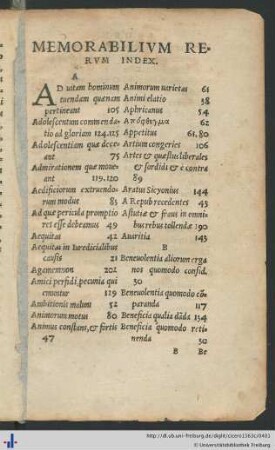 MEMORABILIVM RE-
RVM INDEX.
A
AD uitam hominum
tuendam quænam
pertineant 105
Adolescentum commenda-
tio ad gloriam 124.125
Adolescentiam quæ dece-
ant 75
Admirationem quæ moue-
ant 119.120
Aedificiorum extruendo-
rum modus 85
Ad quæ pericula promptio
res esse debeamus 49
Aequitas 42
Aequitas in Iuredicialibus
causis 21
Agamemnon 202
Amici perfidi, pecunia qui
emuntur 129
Ambitionis malum 52
Animorum motus 80
Animus constans, & fortis
47
Animorum uarietas 61
Animi elatio 58
Aphricanus 54
Appetitus 61,80
Artium congeries 106
Artes & quæstus liberales
& sordidi & è contra
89
Aratus Sicyonius 144
A Repub recedentes 43
Astutiæ & fraus in omni-
bus rebus tollendæ 190
Auaritia 143
B
Beneuolentia aliorum erga
nos quomodo consid.
50
Beneuolentia quomodo cō-
paranda 117
Beneficia qualia dāda 134
Beneficia quomodo reti-
nenda 50
B Be
http://dl.ub.uni-freiburg.de/diglit/cicero1563c/0401
Universitätsbibliothek Freiburg